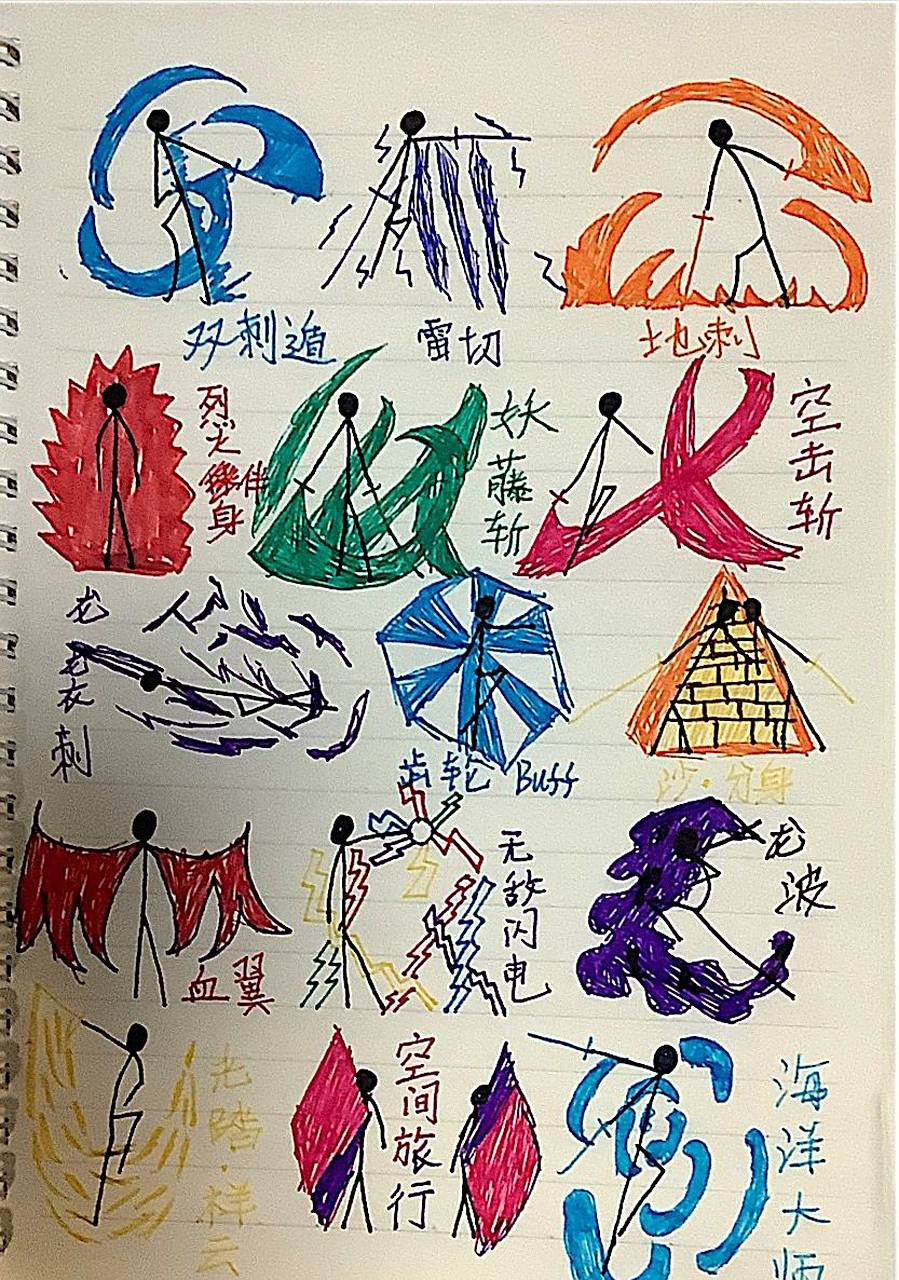 双刺遁
雷切
地刺
烈火
伴身
妖藤斩
空击斩
龙
衣刺
齿轮 Buff
沙·分身
血翼
无敌闪电
龙波
光踏·祥云
空间旅行
海洋大师